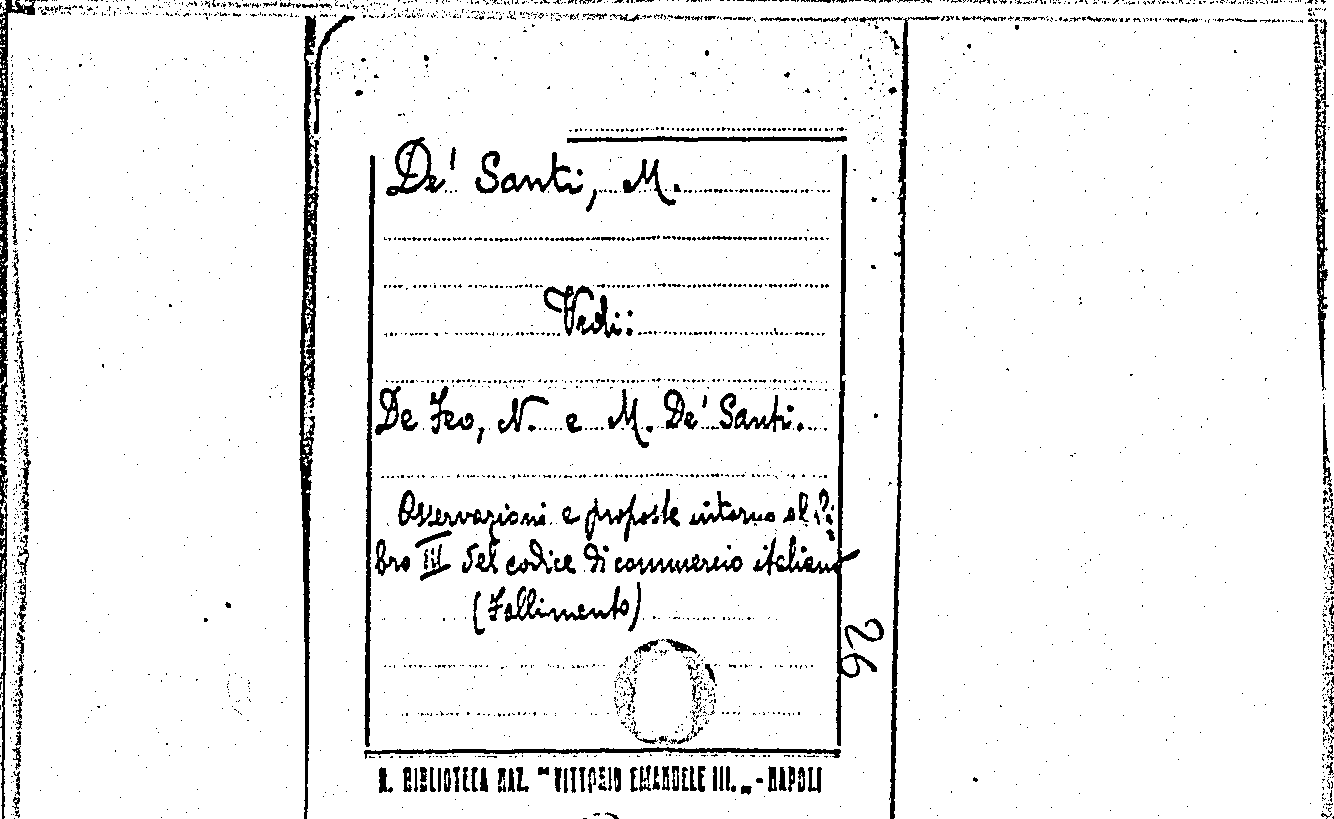 De' Santi, M.
Vedi:
De Feo, N. e M. De' Santi.
Osservazioni e proposte intorno al Li=
bro III del codice di commercio italiano
(Fallimento)
26
R. BIBLIOTECA NAZ. "VITTORIO EMANUELE III." - NAPOLI